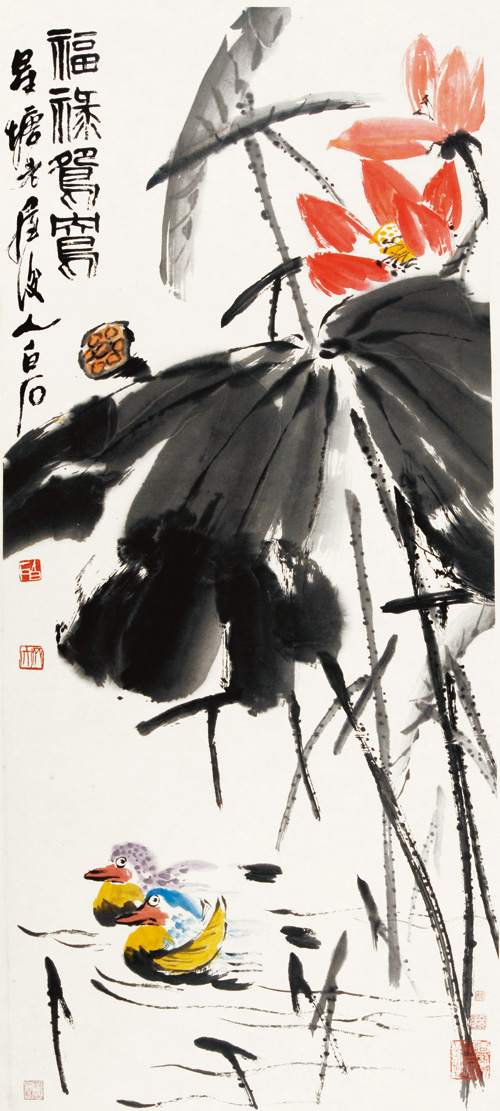 福祿鴛鴦
星塘老屋後人白石